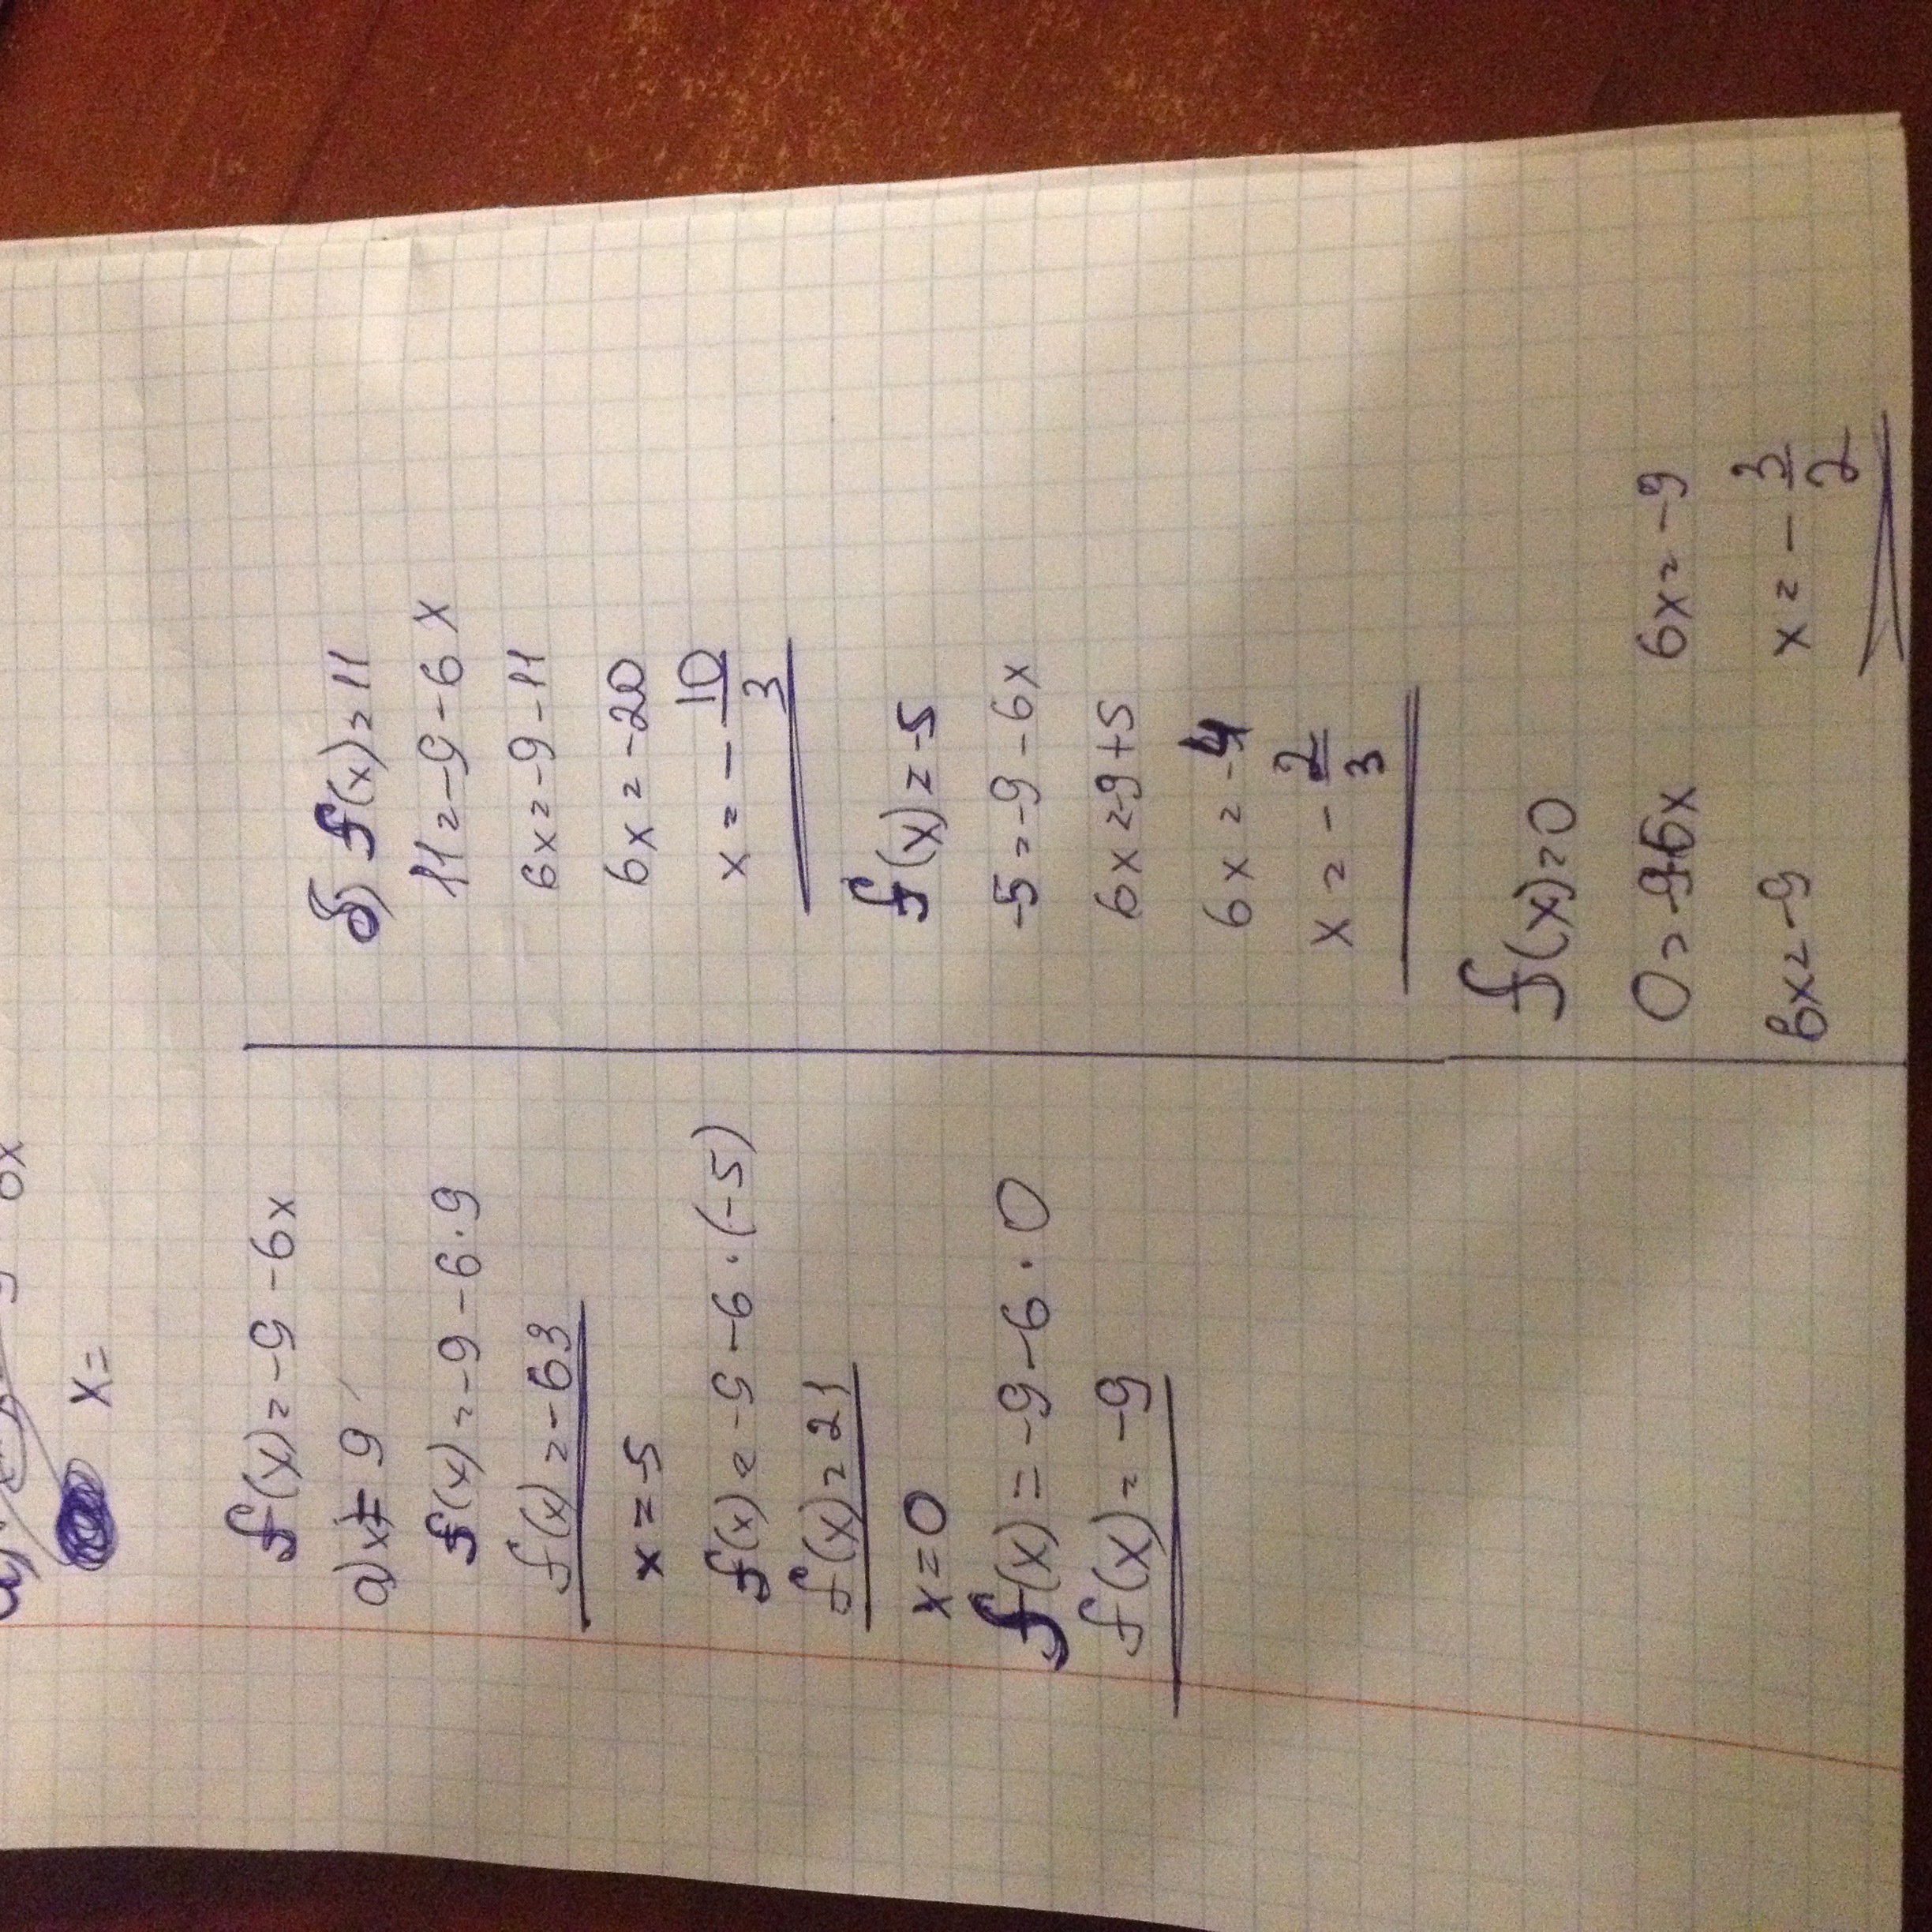 x=
f(x)=-9-6x
а) x=9
f(x)=-9-6·9
f(x)=-63
x=-5
f(x)=-9-6·(-5)
f(x)=21
x=0
f(x)=-9-6·0
f(x)=-9
б) f(x)=11
11=-9-6x
6x=-9-11
6x=-20
x=-10/3
f(x)=-5
-5=-9-6x
6x=-9+5
6x=-4
x=-2/3
f(x)=0
0=-9-6x
6x=-9
6x=-9
x=-3/2